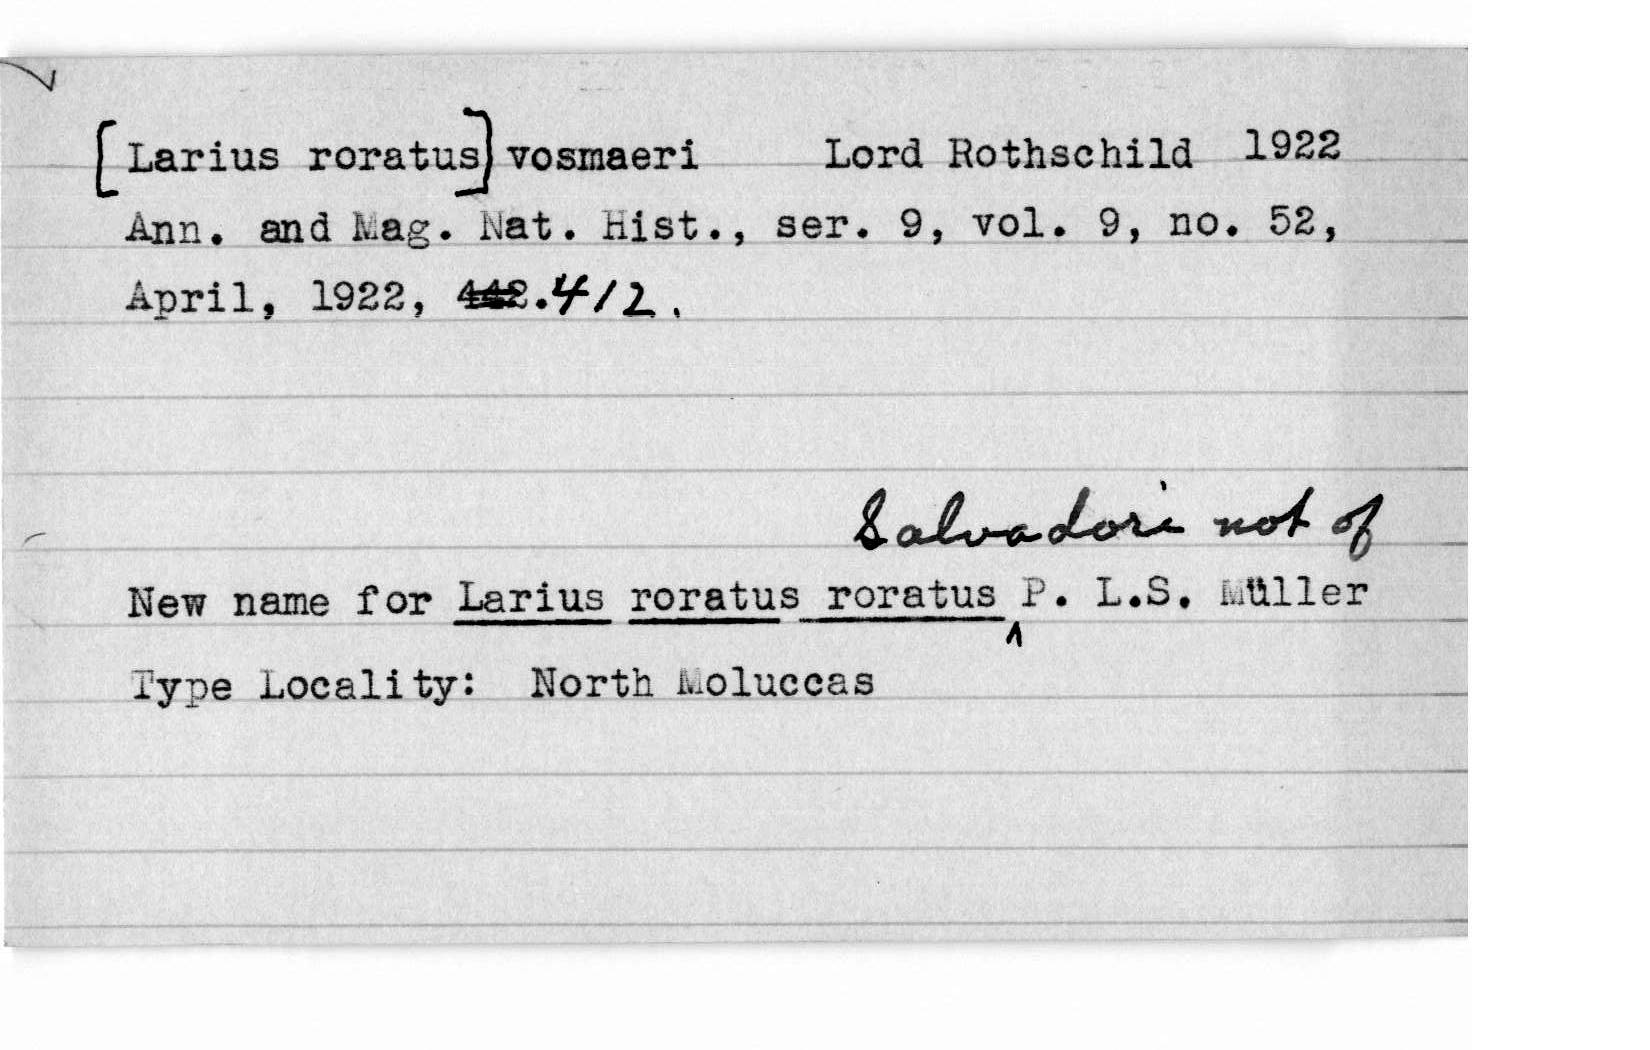 [Larius roratus] vosmaeri Lord Rothschild 1922
Ann. and Mag. Nat. Hist., ser. 9, vol. 9, no. 52,
April, 1922, 442. 412.
Salvadori not of
New name for Larius roratus roratus ^ P. L.S. Müller
Type Locality: North Moluccas